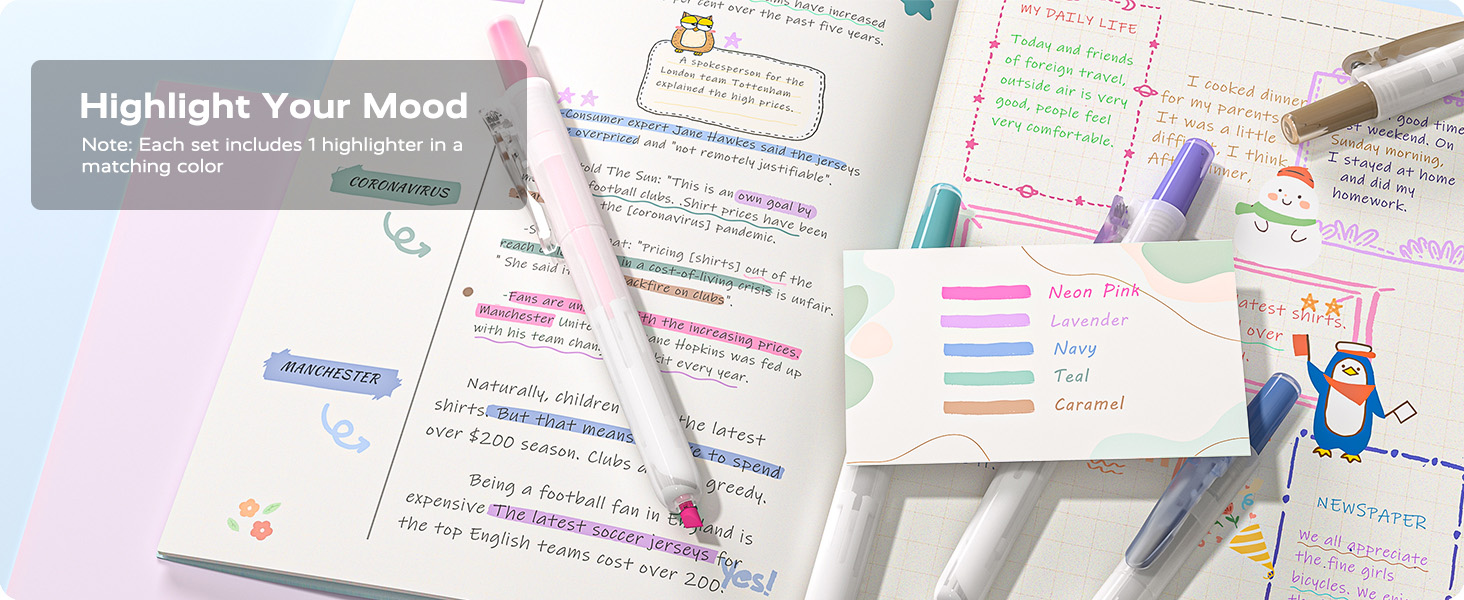 Highlight Your Mood
Note: Each set includes 1 highlighter in a
matching color
have increased
per cent over the past five years.
A spokesperson for the
London team Tottenham
explained the high prices.
-Consumer expert Jane Hawkes said the jerseys
overpriced and "not remotely justifiable".
told The Sun: "This is an own goal by
football clubs. .Shirt prices have been
the [coronavirus] pandemic.
"Pricing [shirts] out of the
reach in a cost-of-living crisis is unfair.
" She said on clubs".
-Fans are with the increasing prices.
Manchester Hopkins was fed up
with his team kit every year.
Naturally, children the latest
shirts. But that means to spend
over $200 season. Clubs greedy.
Being a football fan in England is
expensive The latest soccer jerseys for
the top English teams cost over 200.
Yes!
CORONAVIRUS
MANCHESTER
MY DAILY LIFE
Today and friends
of foreign travel,
outside air is very
good, people feel
very comfortable.
I cooked dinner
for my parents
It was a little
I think
good time
weekend. On
Sunday morning,
I stayed at home
and did my
homework.
Neon Pink
Lavender
Navy
Teal
Caramel
latest shirts.
over
NEWSPAPER
We all appreciate
the.fine girls
bicycles. We